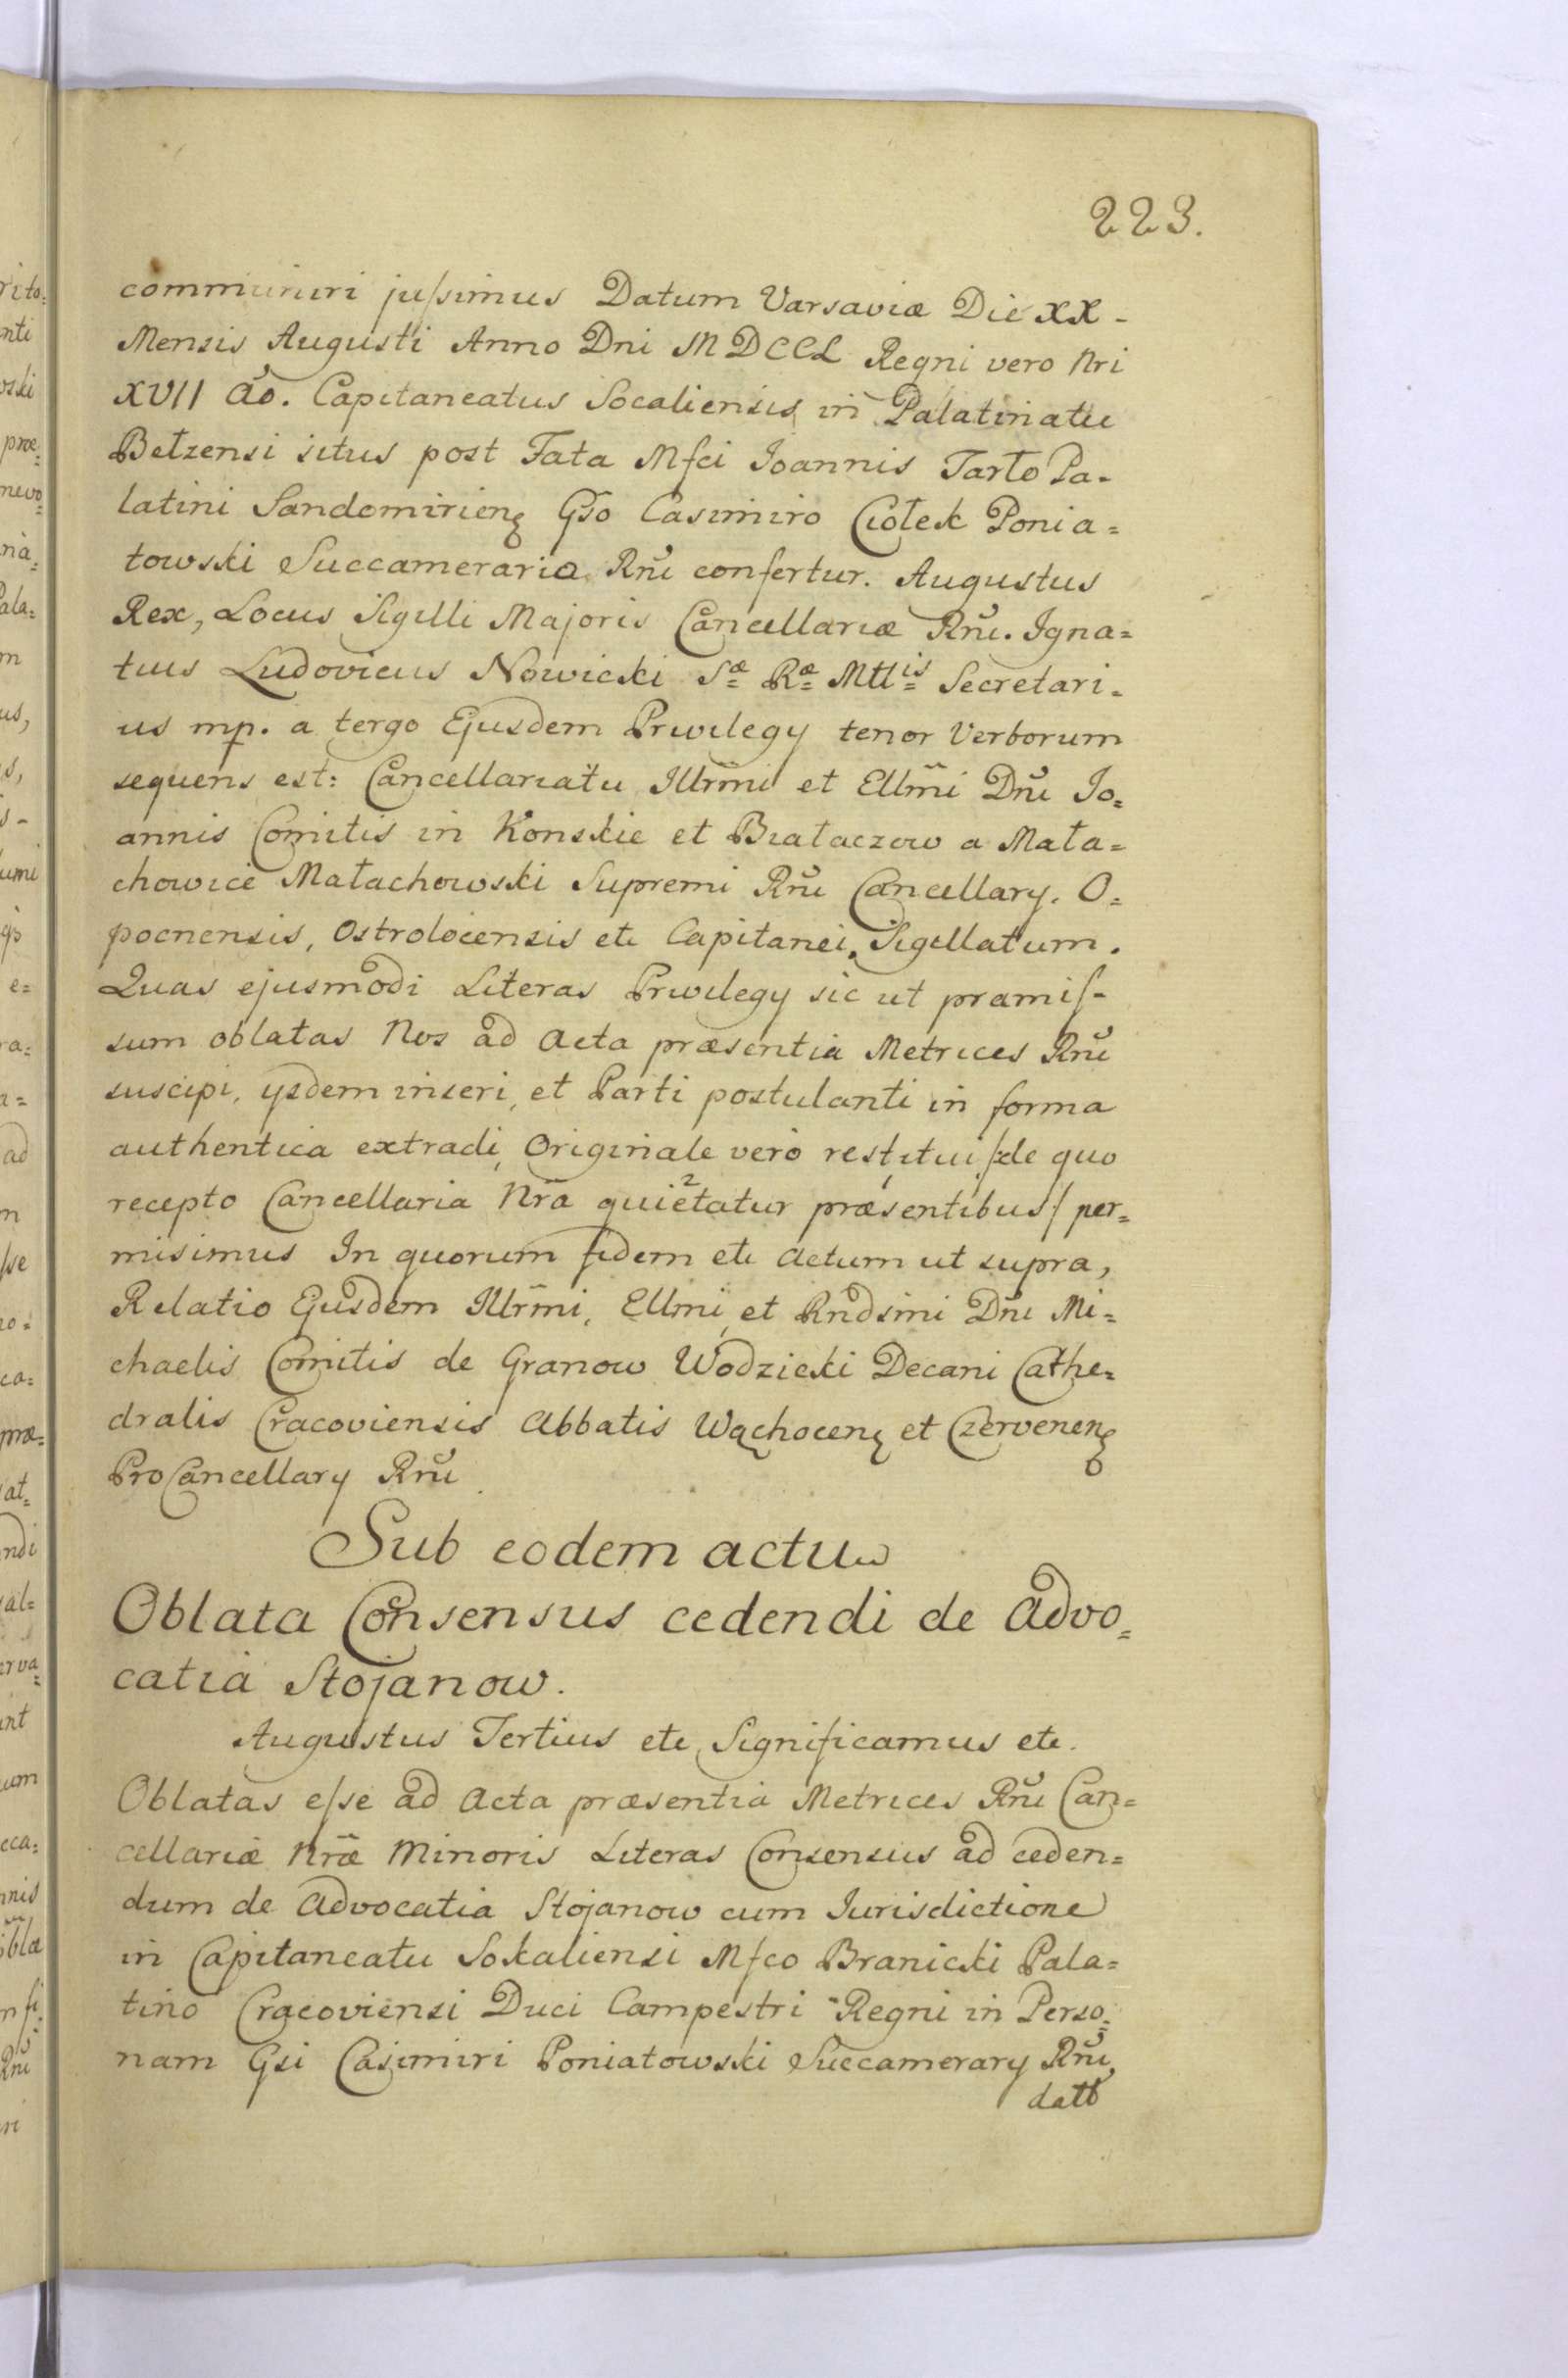 223.
communiri jussimus Datum Varsaviæ Die XX-
Mensis Augusti Anno Dni MDCCL Regni vero Nri
XVII Ao. Capitaneatus Socaliensis in Palatinatu
Betzensi situs post Fata Mfci Joannis Tarło Pa-
latini Sandomirien Gso Casimiro Ciołek Ponia=
towski Succamerario Rnĩ confertur. Augustus
Rex, Locus Sigilli Majoris Cancellariæ Rnĩ. Igna=
tius Ludovicus Nowicki Sæ Ræ Mttis Secretari=
us mp. a tergo Ejusdem Privilegy tenor Verborum
sequens est: Cancellariatu Illrm̃i et Ellm̃i Dnĩ Jo=
annis Comitis in Konskie et Białaczow a Mała=
chowice Małachowski Supremi Rnĩ Cancellary. O=
pocnensis, Ostrolocensis etc Capitanei. Sigillatum.
Quas ejusmodi Literas Privilegy sic ut præmis-
sum oblatas Nos ad Acta præsentia Metrices Rnĩ
suscipi, ysdem inseri, et Parti postulanti in forma
authentica extradi, Originale vero restitui /:de quo
recepto Cancellaria Nrã quietatur præsentibus/ per=
misimus In quorum fidem etc Actum ut supra,
Relatio Ejusdem Illrm̃i, Ellmi, et Rndsmi Dnĩ Mi=
chaelis Comitis de Granow Wodzicki Decani Cathe=
dralis Cracoviensis Abbatis Wąchocen et Czervenen
ProCancellary Rnĩ
Sub eodem actu
Oblata Consensus cedendi de Advo=
catia Stojanow.
Augustus Tertius etc Significamus etc.
Oblatas esse ad Acta præsentia Metrices Rnĩ Can=
cellariæ Nræ Minoris Literas Consensus ad ceden=
dum de Advocatia Stojanow cum Jurisdictione
in Capitaneatu Sokaliensi Mfco Branicki Pala=
tino Cracoviensi Duci Campestri Regni in Perso=
nam Gsi Casimiri Poniatowski Succamerary Rnĩ
datt